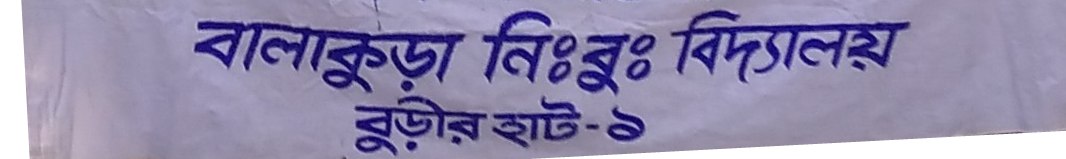 বালাকুড়া নিঃবুঃ বিদ্যালয়
বুড়ীর হাট-১